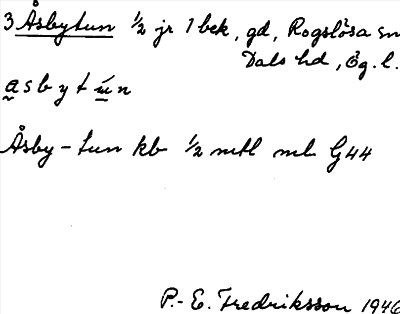 3 Åsbytun ½ jr 1 bek, gd, Rogslösa sn
Dals hd, Ög. l.
a s b y t ú n
Åsby-tun kb ½ mtl ml G44
P.-E. Fredriksson 1946